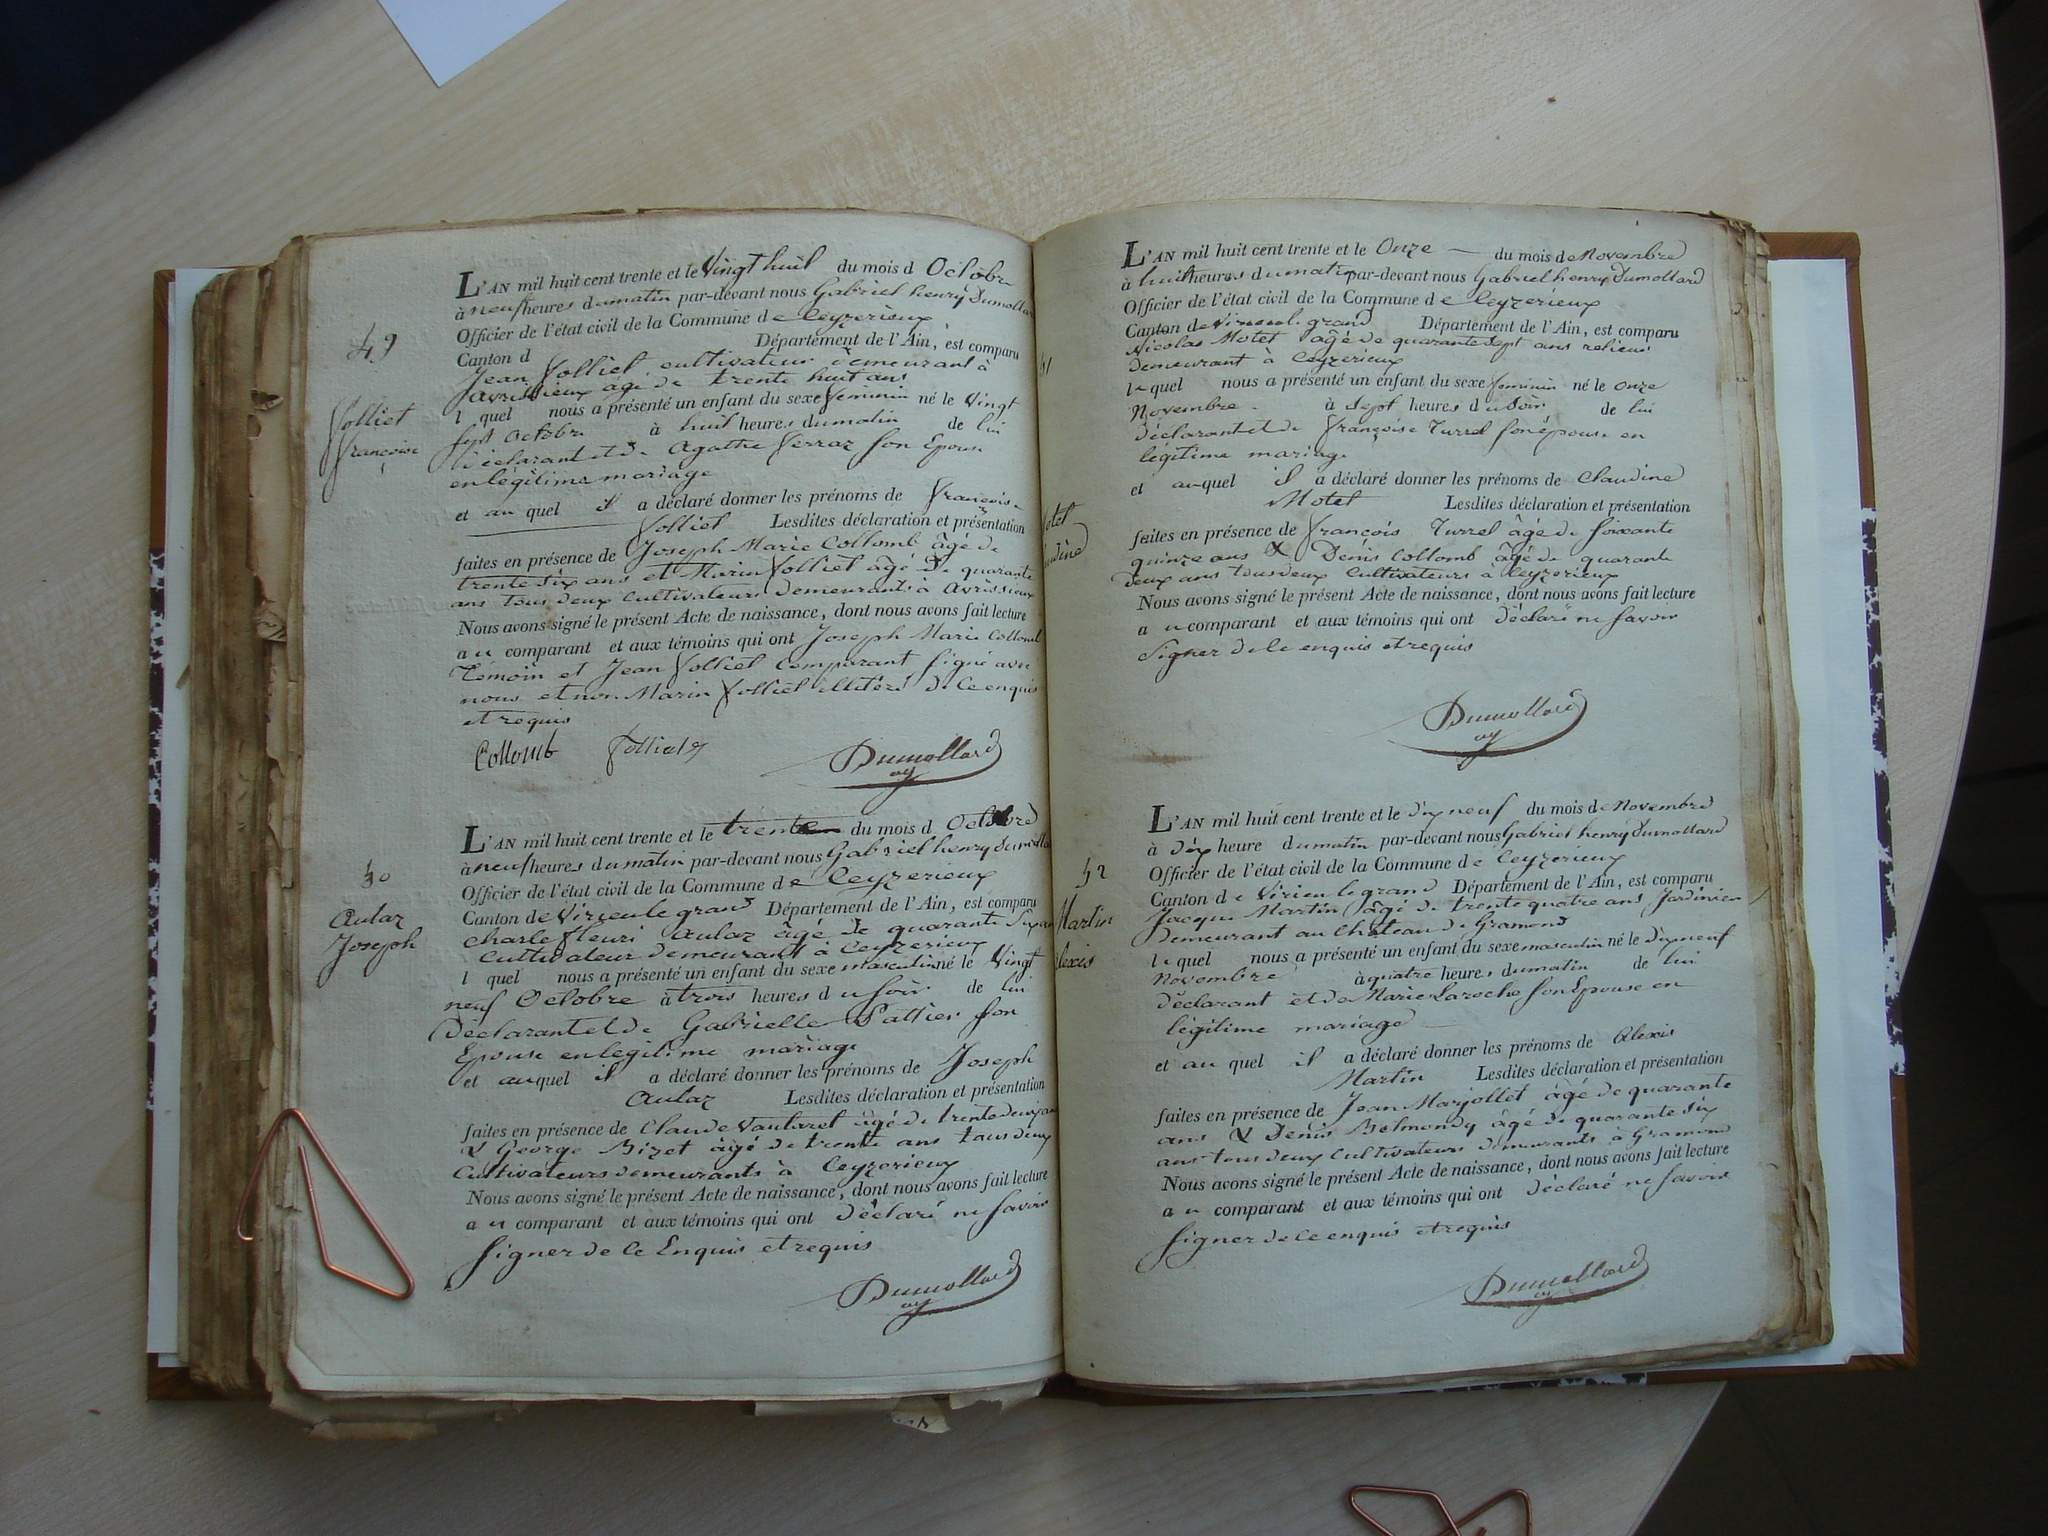 L'AN mil huit cent trente et le Vingt huit du mois d Octobre
à neuf heures du matin par-devant nous Gabriel henry Dumollard
Officier de l'état civil de la Commune de Ceyzerieux
Canton d Département de l'Ain, est comparu
Jean Volliet cultivateur demeurant à
Avrissieux âgé de trente huit ans
l quel nous a présenté un enfant du sexe feminin né le Vingt
Sept Octobre à huit heures du matin de lui
déclarant et de Agathe Ferraz son Epouse
en légitime mariage
et au quel il a déclaré donner les prénoms de Françoise
Volliet Lesdites déclaration et présentation
faites en présence de Joseph Marie Collomb âgé de
trente six ans et Marin Volliet âgé de quarante
ans tous deux cultivateurs demeurants à Avrissieux
Nous avons signé le présent Acte de naissance, dont nous avons fait lecture
au comparant et aux témoins qui ont Joseph Marie Collomb
Témoin et Jean Volliet comparant signé avec
nous et non Marin Volliet illitéré de ce enquis
et requis
Collomb Volliet Dumollard
49
Volliet
françoise
L'AN mil huit cent trente et le trente du mois d Octobre
à neuf heures du matin par-devant nous Gabriel henry Dumollard
Officier de l'état civil de la Commune de Ceyzerieux
Canton de Virieu le grand Département de l'Ain, est comparu
Charle fleuri Aulaz âgé de quarante Six ans
Cultivateur demeurant à Ceyzerieux
l quel nous a présenté un enfant du sexe masculin né le Vingt
neuf Octobre à trois heures du Soir de lui
Declarant et de Gabrielle Pattier son
Epouse en legitime mariage
et au quel il a déclaré donner les prénoms de Joseph
Aulaz Lesdites déclaration et présentation
faites en présence de Claude Vautaret âgé de trente deux ans
& George Bizet âgé de trente ans tous deux
Cultivateurs demeurants à Ceyzerieux
Nous avons signé le présent Acte de naissance, dont nous avons fait lecture
au comparant et aux témoins qui ont déclaré ne savoir
signer de ce Enquis et requis
Dumollard
50
Aulaz
Joseph
L'AN mil huit cent trente et le Onze du mois de Novembre
à huit heures du matin par-devant nous Gabriel henry Dumollard
Officier de l'état civil de la Commune de Ceyzerieux
Canton de Virieu le grand Département de l'Ain, est comparu
Nicolas Motet âgé de quarante Sept ans
demeurant à Ceyzerieux
le quel nous a présenté un enfant du sexe feminin né le Onze
Novembre à Sept heures du Soir de lui
déclarant et de Françoise Turrel son épouse en
légitime mariage
et au quel il a déclaré donner les prénoms de Claudine
Motet Lesdites déclaration et présentation
faites en présence de François Turrel âgé de soixante
quinze ans & Denis Collomb âgé de quarante
deux ans tous deux Cultivateurs à Ceyzerieux
Nous avons signé le présent Acte de naissance, dont nous avons fait lecture
au comparant et aux témoins qui ont déclaré ne savoir
Signer de ce enquis et requis
Dumollard
51
otet
udine
L'AN mil huit cent trente et le dix neuf du mois de Novembre
à dix heure du matin par-devant nous Gabriel henry Dumollard
Officier de l'état civil de la Commune de Ceyzerieux
Canton de Virieu le grand Département de l'Ain, est comparu
Jacque Martin âgé de trente quatre ans Jardinier
demeurant au Château de Gramond
le quel nous a présenté un enfant du sexe masculin né le dix neuf
Novembre à quatre heures du matin de lui
déclarant et de Marie Laroche son Epouse en
légitime mariage
et au quel il a déclaré donner les prénoms de Alexis
Martin Lesdites déclaration et présentation
faites en présence de Jean Marjollet âgé de quarante
ans & Denis Belmondy âgé de quarante six
ans tous deux Cultivateurs demeurants à Gramond
Nous avons signé le présent Acte de naissance, dont nous avons fait lecture
au comparant et aux témoins qui ont déclaré ne savoir
signer de ce enquis et requis
Dumollard
52
Martin
lexis